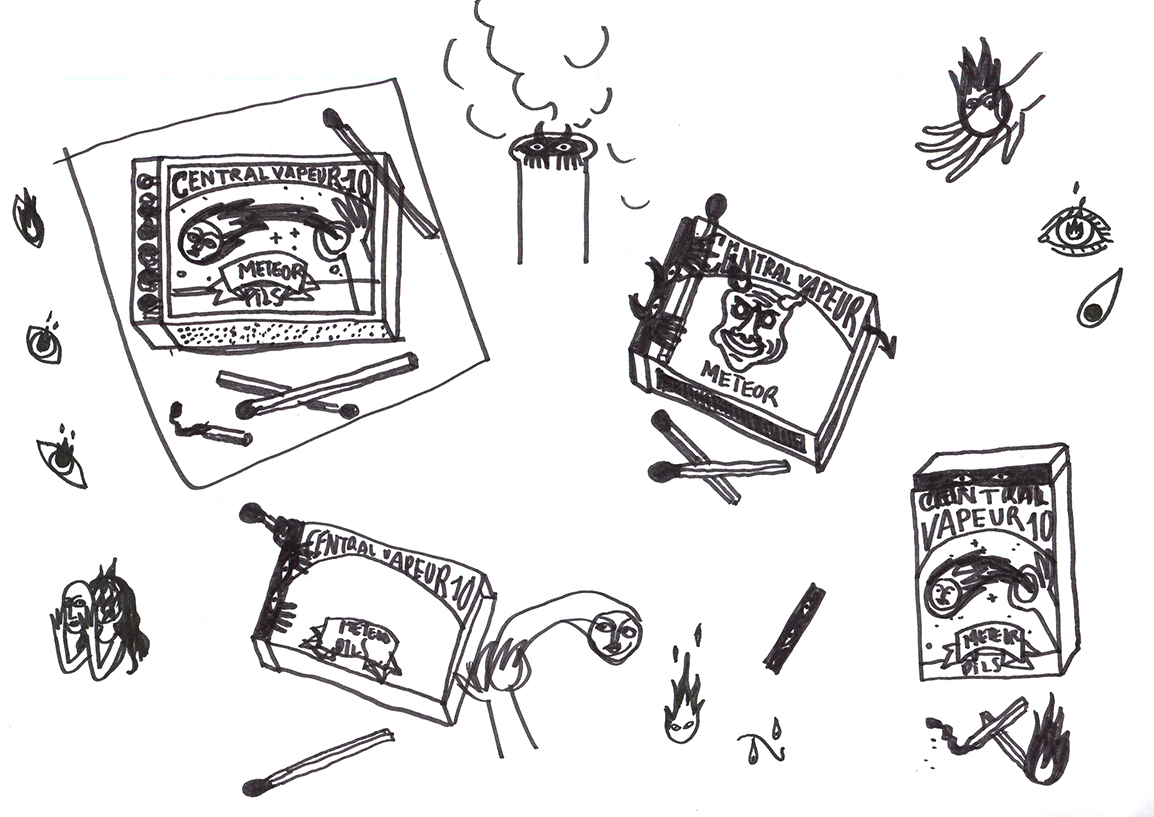 CENTRAL VAPEUR 10
METEOR
PILS
CENTRAL VAPEUR
METEOR
CENTRAL VAPEUR 10
METEOR
PILS
CENTRAL
VAPEUR 10
METEOR
PILS